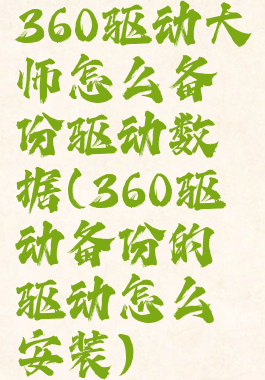 360驱动大
师怎么备
份驱动数
据(360驱
动备份的
驱动怎么
安装)